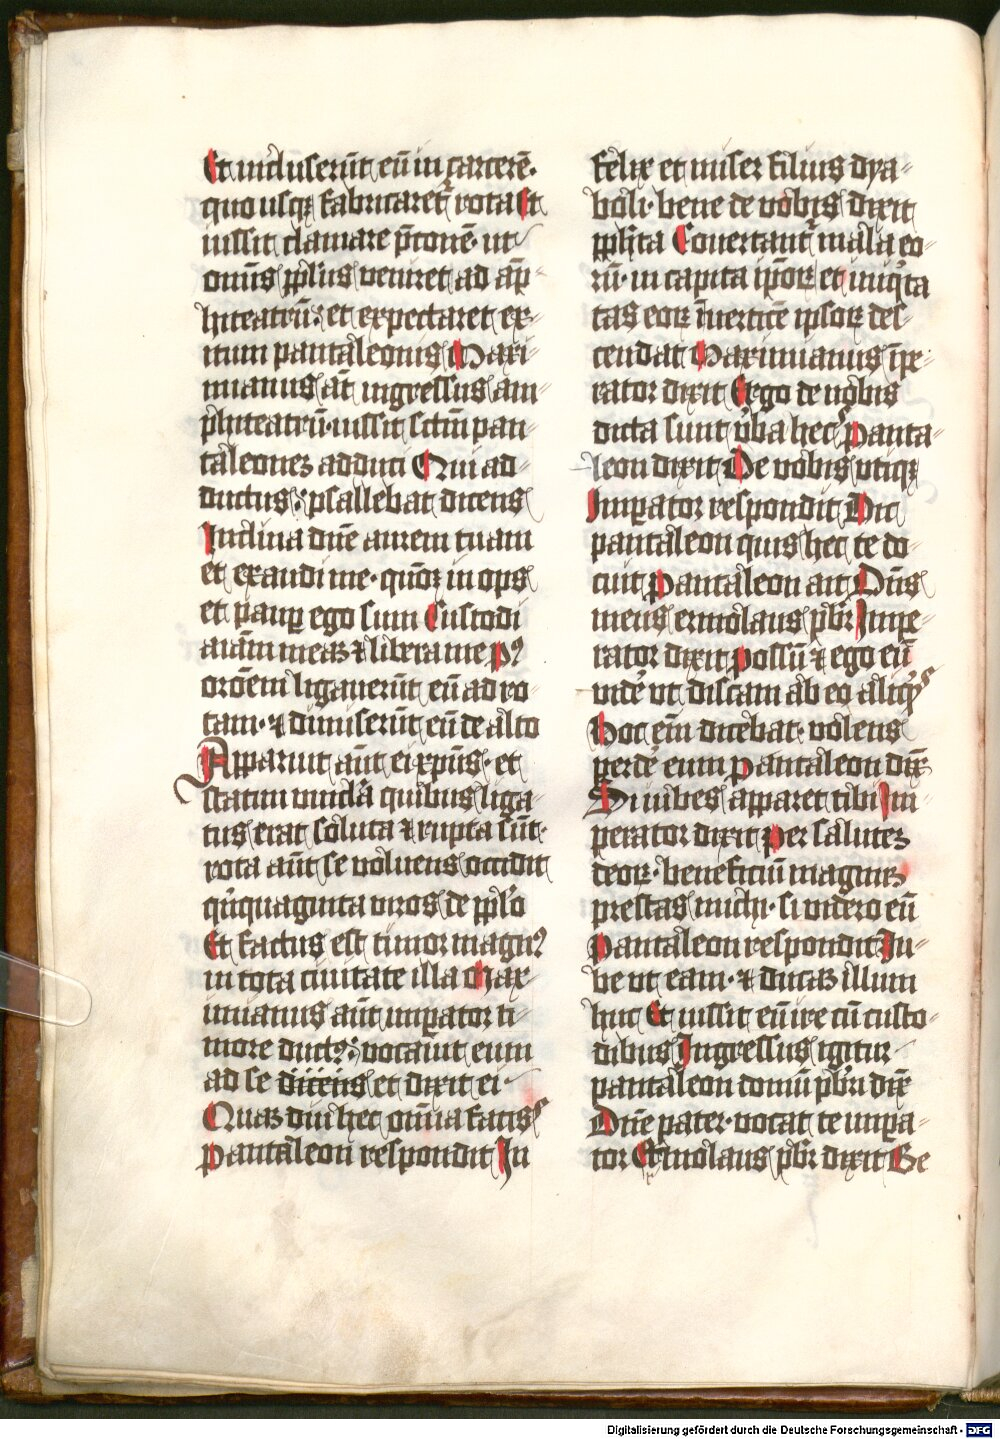 Et incluserūt eū in carcerē.
quo usqꝫ fabricaretᷣ rota Et
iussit clamare p̄conē· ut
om̄is pp̄lus veniret ad ap̄-
hiteatrū: et expectaret ex-
itum pantaleonis Maxi-
mianus at̄ ingressus am-
phiteatrū· iussit sctm̄ pan-
taleonez adduci Qui ad-
ductus: psallebat dicens
Inclina dn̄e aurem tuam
et exaudi me· qm̄oꝫ inops
et paupꝑ ego sum Custodi
aīam meaꝫ ⁊ libera me Pꝰ
orōem ligauerūt eū ad ro-
tam· ⁊ dimiserūt eū de alto
Apparuit aūt ei xpūs· et
statim vincla quibus liga-
tus erat soluta ⁊ rupta sūt·
rota aūt se voluens occidit
qͥnquaginta viros de pplo
Et factus est timor magnꝰ
in tota ciuitate illa Max-
imianus aūt impꝑator ti-
more ductꝰ: vocauit eum
ad se et dixit ei
Quaꝫ diu hec om̄ia facis
Pantaleon respondit In-
felix et miser filius dya-
boli· bene de vobis dixit
pph̄ta Conuertantᷣ mala eo-
rū· in capita ip̄oꝝ et iniqͥta
tas eoꝝ ī uerticē ipsoꝝ des-
cendat Maximianus īpe-
rator dixit Ergo de nobis
dicta sunt v̓ba hec Panta-
leon dixit De vobis vtiqꝫ
Impꝑator respondit Dic
pantaleon quis hec te do-
cuit Pantaleon ait Dn̄s
meus ermolaus pb̄r Impe-
rator dixit Possū ⁊ ego eū
vide̓ vt discam ab eo aliqͥd
Hoc em̄ dicebat· volens
ꝑde̓ eum Pantaleon dix̄
Si iubes apparet tibi Im-
perator dixit Per salutez
deoꝝ· beneficiū magnuꝫ
prestas michi· si videro eū
Pantaleon respondit Iu-
be vt eam· ⁊ ducaꝫ illum
huc Et iussit eū ire cū custo-
dibus Ingressus igitur
pantaleon domū pb̄ri dix̄
Dn̄e pater· vocat te impꝑa-
tor Ermolaus pb̄r dixit Be
Digitalisierung gefördert durch die Deutsche Forschungsgemeinschaft - DFG